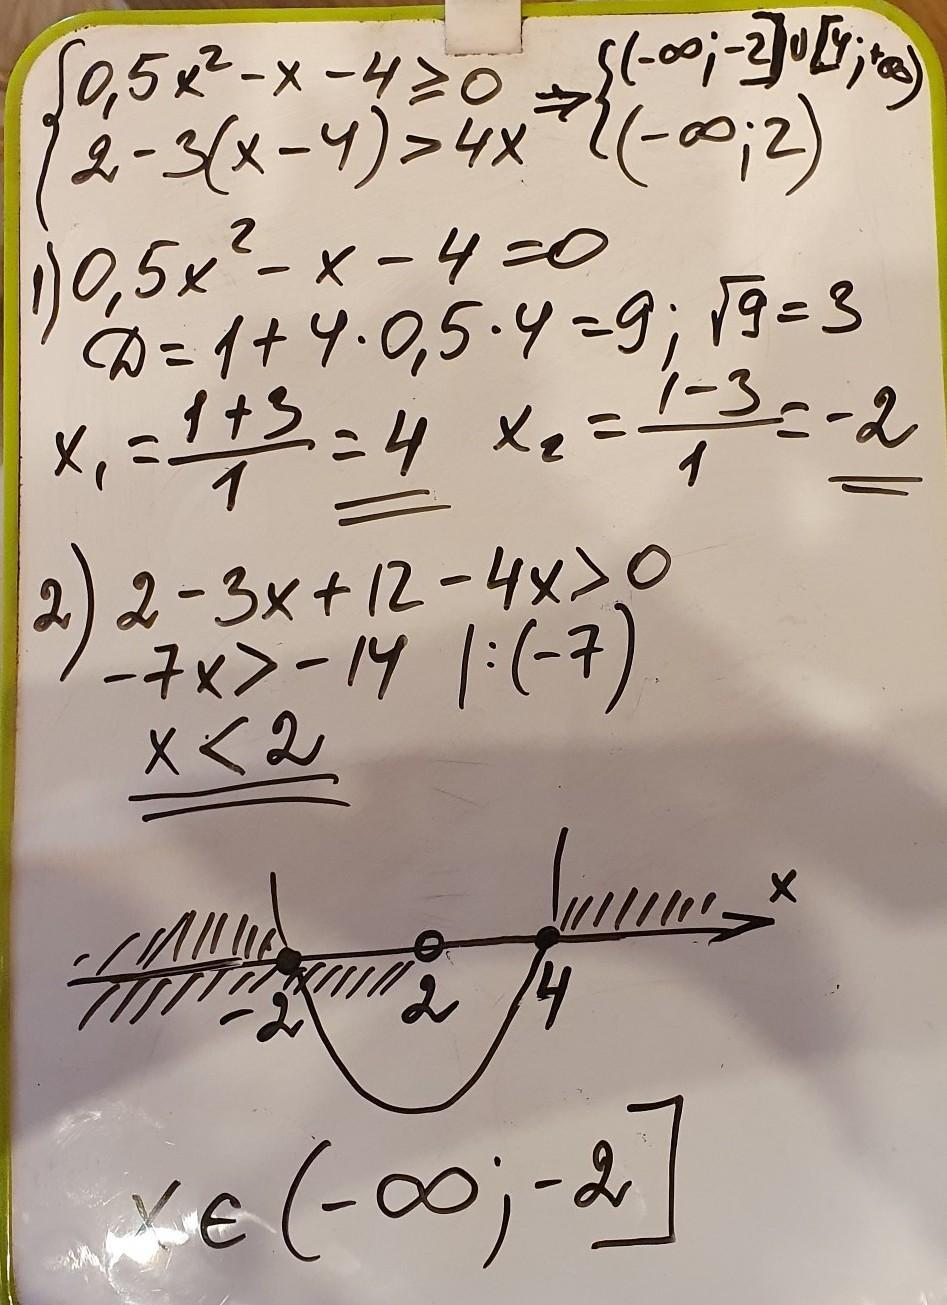 {0,5x² - x - 4 ≥ 0 ⇒ {(-∞; -2] ∪ [4; +∞)
{2 - 3(x - 4) > 4x {(-∞; 2)
1) 0,5x² - x - 4 = 0
D = 1 + 4 · 0,5 · 4 = 9; √9 = 3
x₁ = (1+3)/1 = 4 x₂ = (1-3)/1 = -2
2) 2 - 3x + 12 - 4x > 0
-7x > -14 | : (-7)
x < 2
x
-2 2 4
x ∈ (-∞; -2]